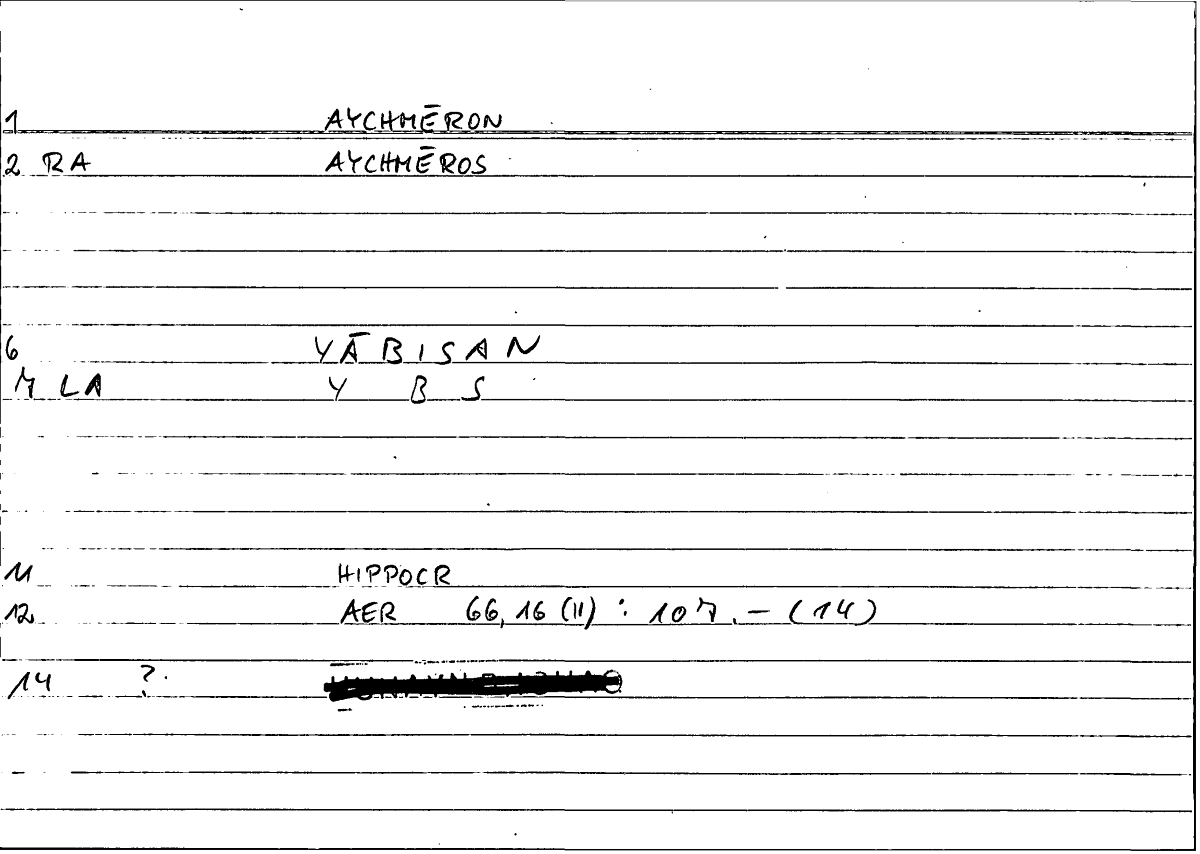 1 AYCHMĒRON
2 RA AYCHMĒROS
6 YĀBISAN
7 LA Y B S
11 HIPPOCR
12 AER 66,16 (II) : 107.- (14)
14 ?